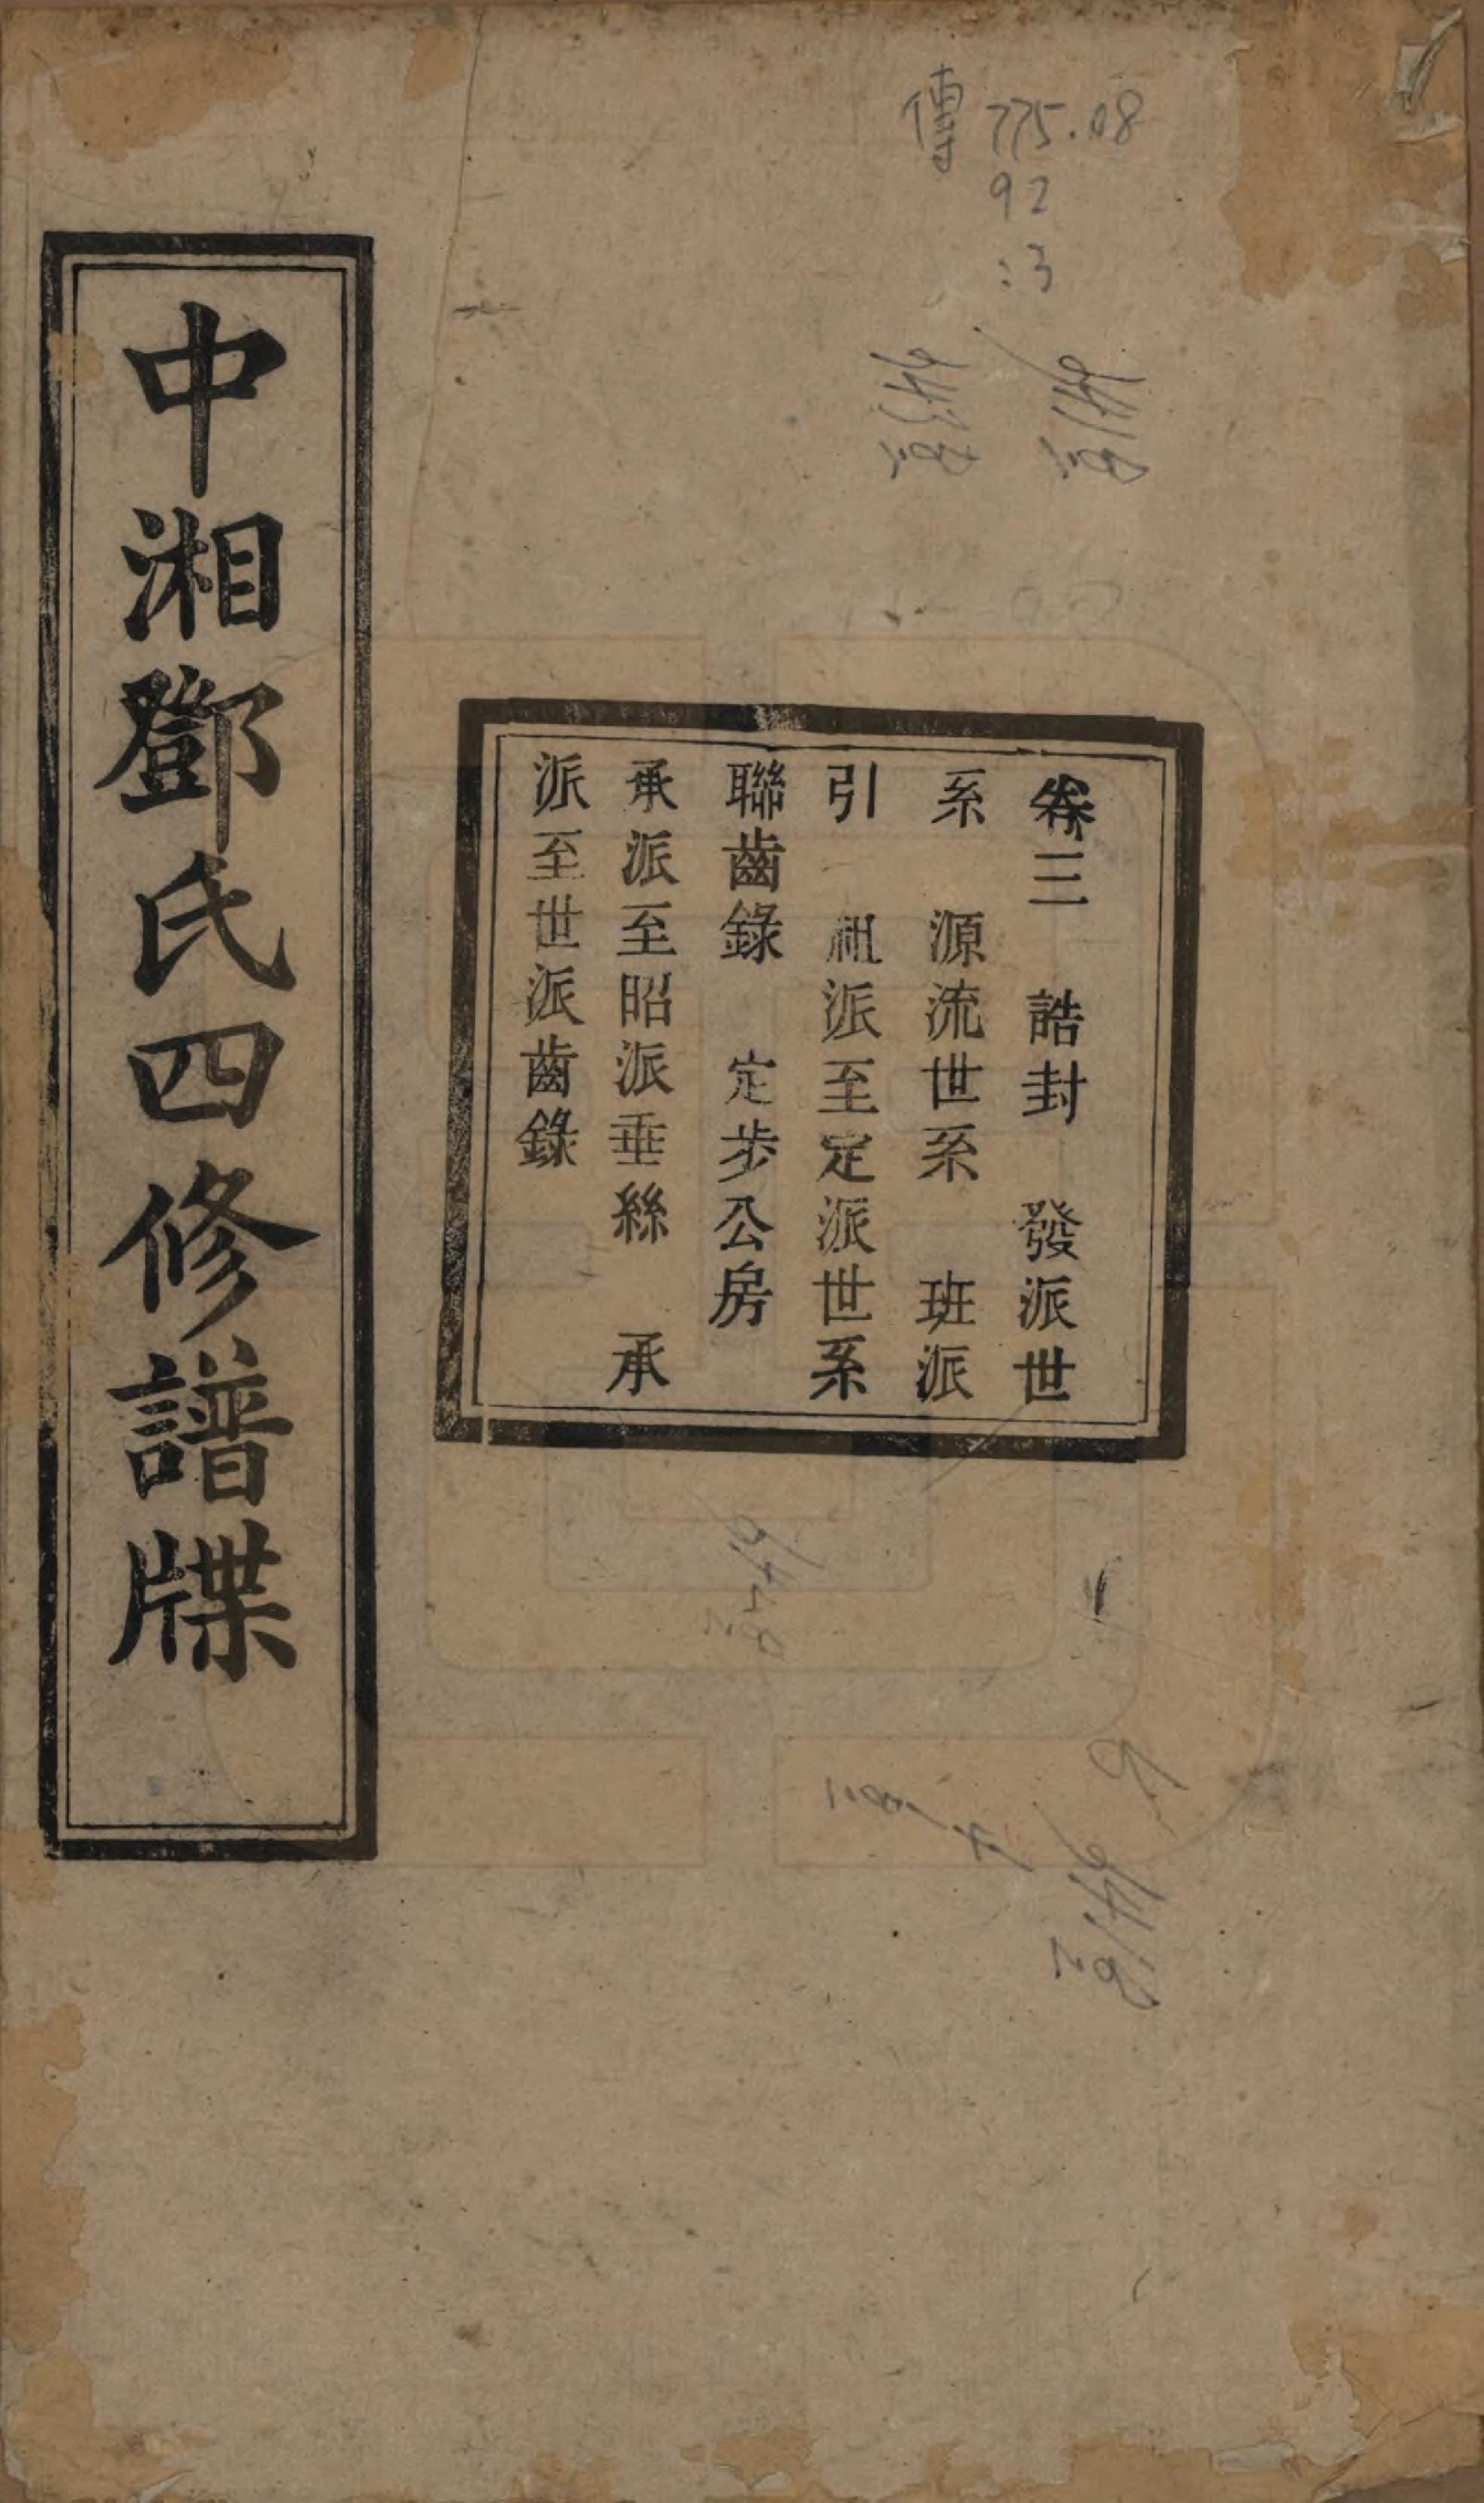 傳 775.08
92
:3
中湘鄧氏四修譜牒
卷三 誥封 發派世
系 源流世系 班派
引 祖派至定派世系
聯齒錄 定步公房
承派至昭派垂絲 承
派至世派齒錄